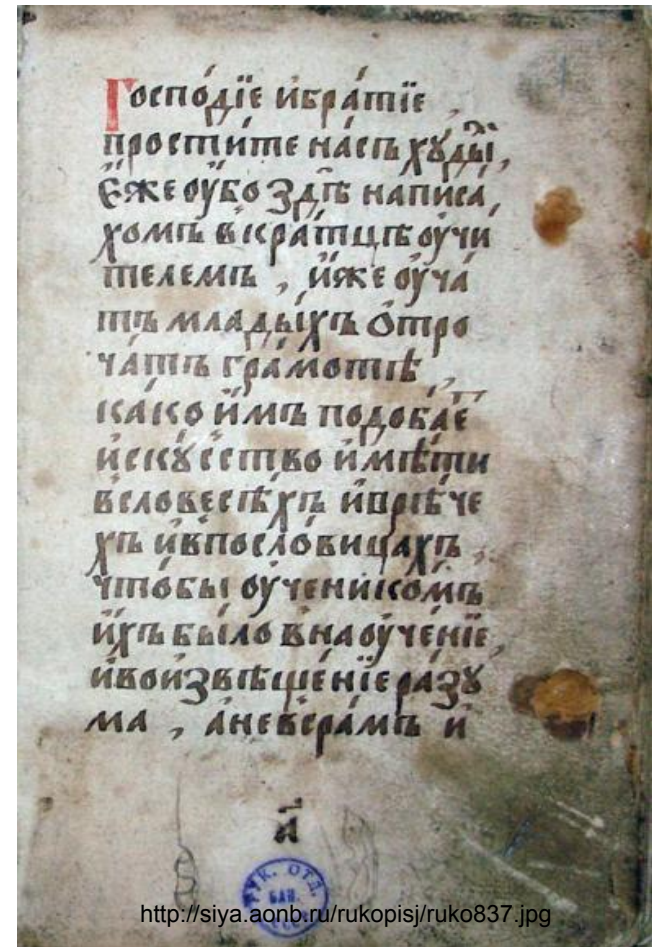 Госпо́дїе и҆бра́тїе ,
прости́те на́съ хꙋды́й,
є҆́же оу҆́бо здѣ̀ написа́
хомъ вкра́тцѣ оу҆чи
телемъ , и҆̀же оу҆ча́
тъ младыхъ ѻ҆тро
ча́тъ гра́мотѣ ,
ка́ко и҆̀мъ подоба́е
и҆скꙋ́сство и҆мѣ́ти
всловесѣ́хъ и҆врѣ́че
хъ и҆впосло́вицахъ ,
что́бы оу҆ченико́мъ
и҆́хъ бы́ло внаоу҆че́нїе,
и҆вои҆звѣще́нїе ра́зꙋ
ма , а҆невсра́мъ и҆
а҃
РУК. ОТД.
БАН.
СССР
http://siya.aonb.ru/rukopisj/ruko837.jpg